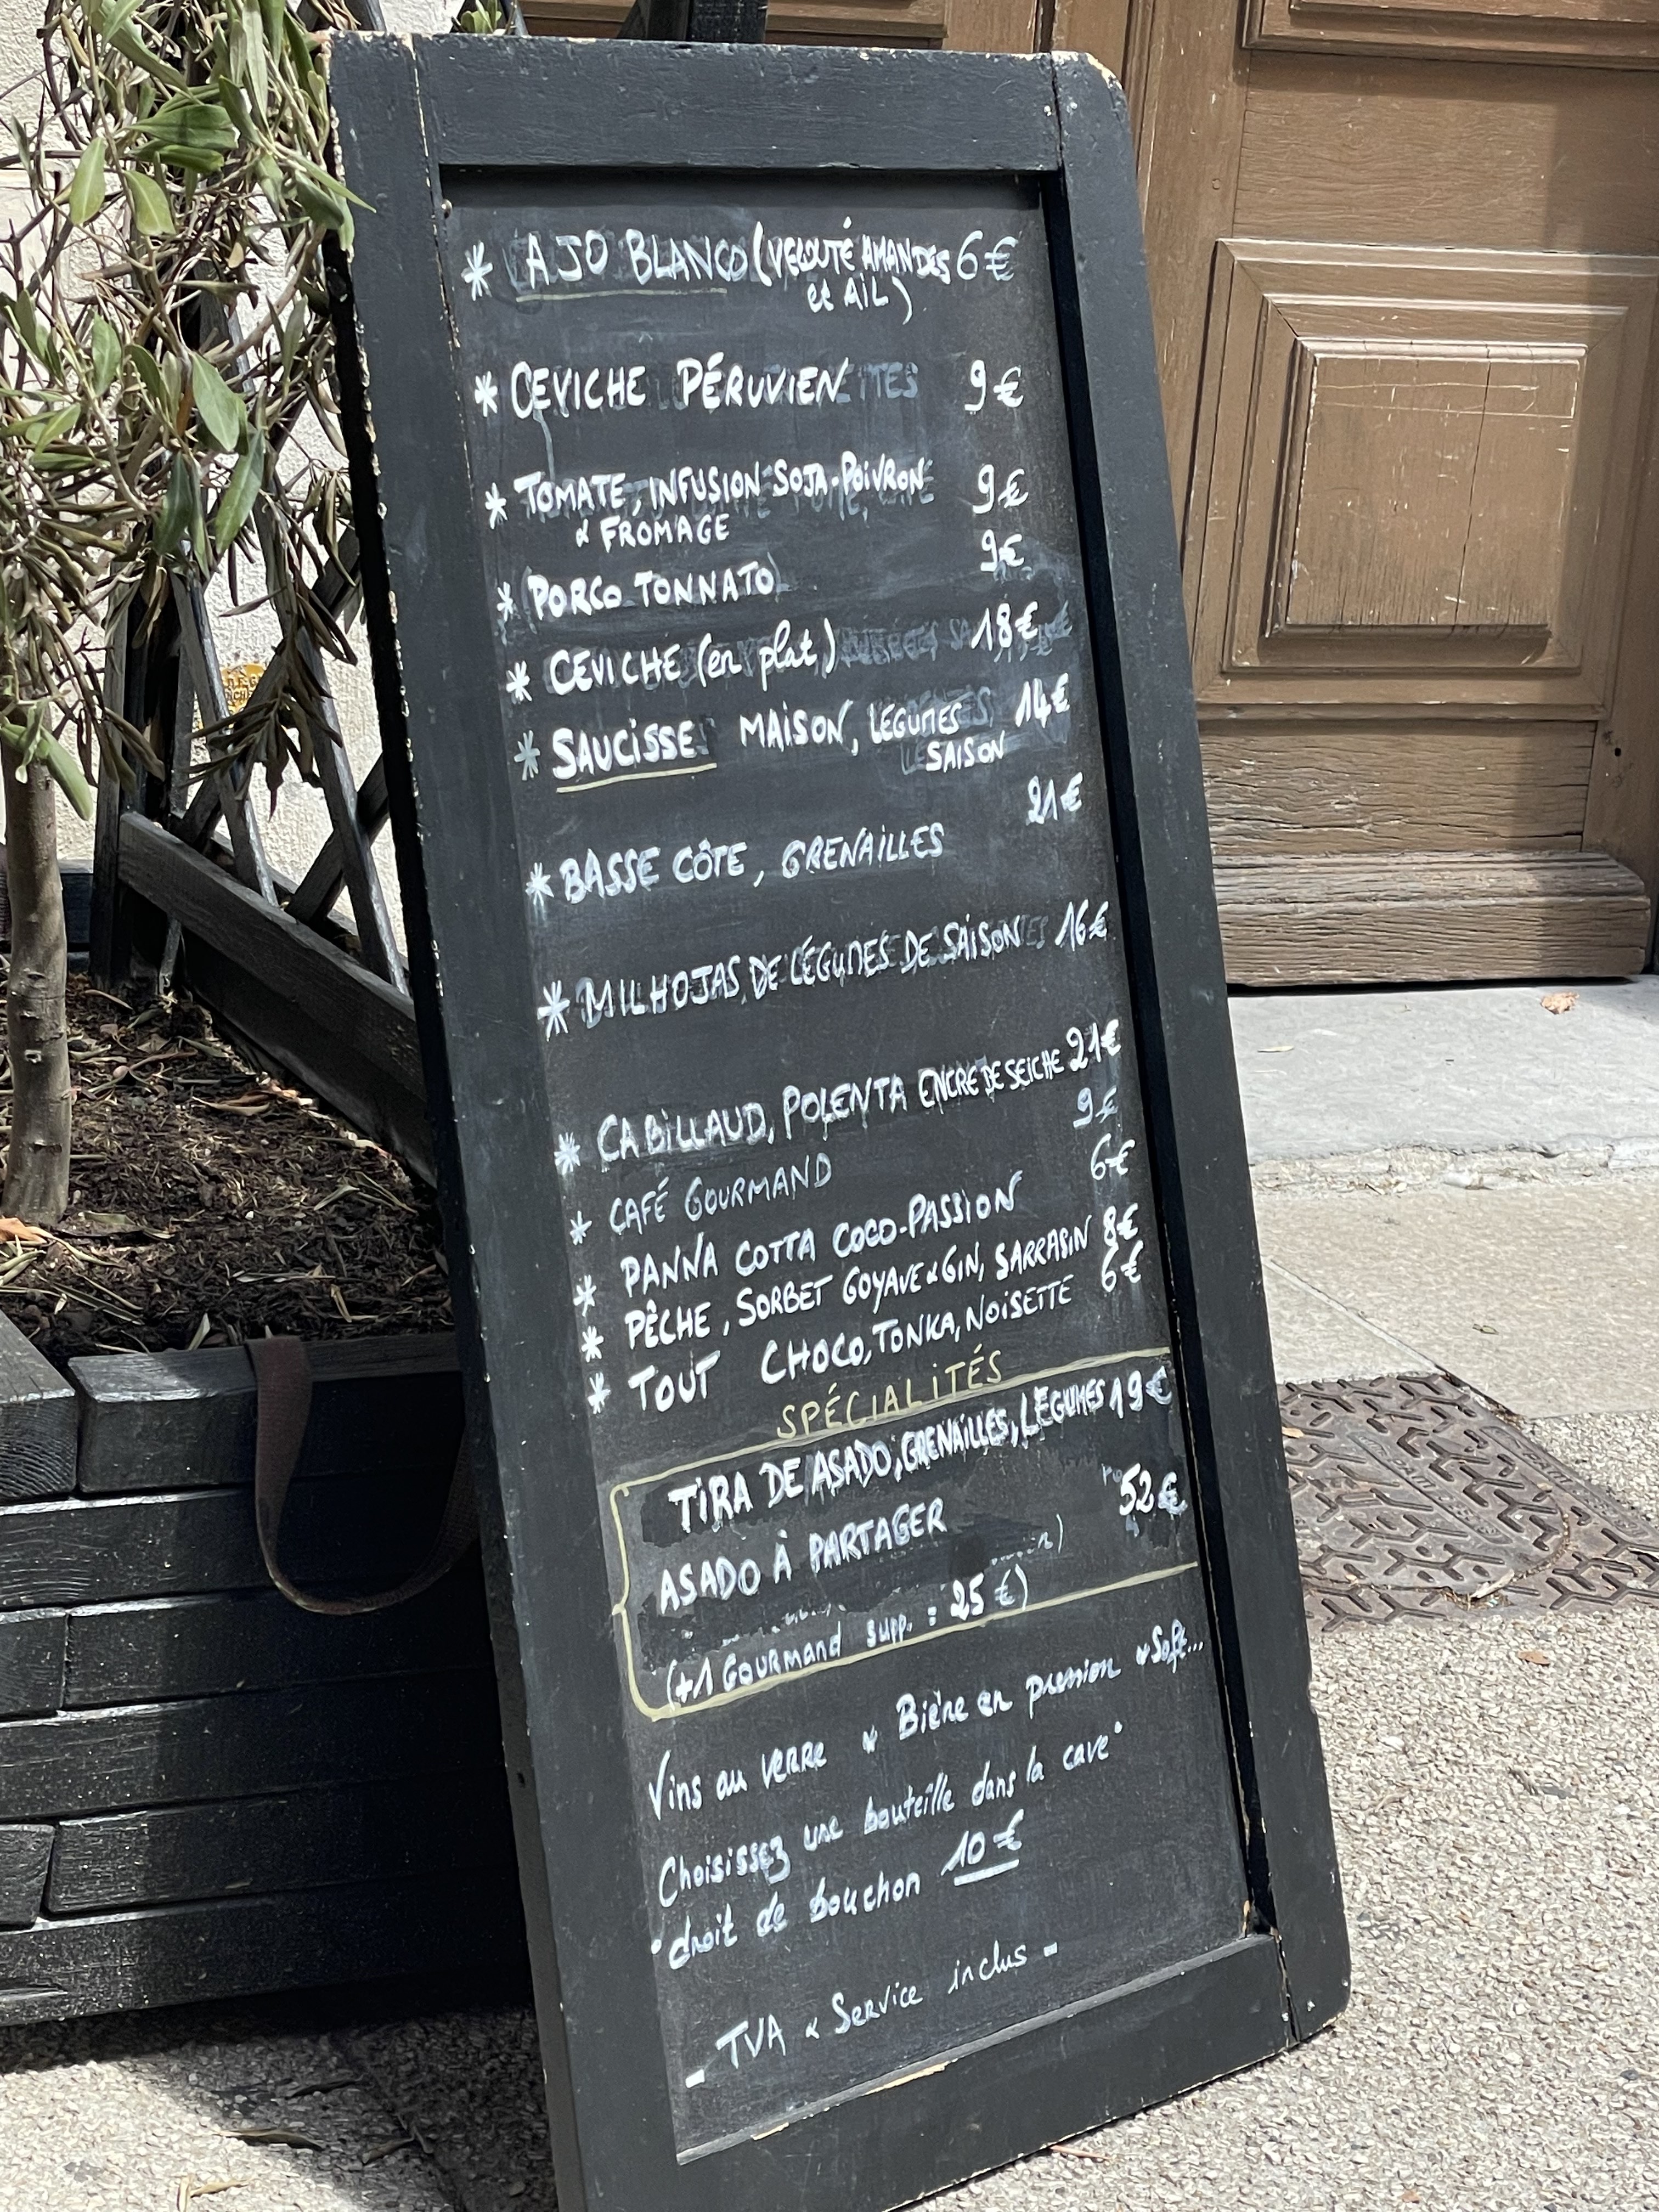 * AJO BLANCO (VELOUTÉ AMANDES 6€
et AIL)
* CEVICHE PÉRUVIEN 9€
* TOMATE, INFUSION SOJA-POIVRON 9€
& FROMAGE
* PORCO TONNATO 9€
* CEVICHE (en plat) 18€
* SAUCISSE MAISON, LÉGUMES 14€
SAISON
* BASSE CÔTE, GRENAILLES 21€
* MILHOJAS DE LÉGUMES DE SAISON 16€
* CABILLAUD, POLENTA ENCRE DE SEICHE 21€
* CAFÉ GOURMAND 9€
* PANNA COTTA COCO-PASSION 6€
* PÊCHE, SORBET GOYAVE & GIN, SARRASIN 8€
* TOUT CHOCO, TONKA, NOISETTE 6€
SPÉCIALITÉS
TIRA DE ASADO, GRENAILLES, LÉGUMES 19€
ASADO À PARTAGER 52€
(+1 GOURMAND supp. : 25 €)
Vins au verre * Bière en pression * Soft...
Choisissez une bouteille dans la cave*
*droit de bouchon 10€
- TVA & Service inclus -